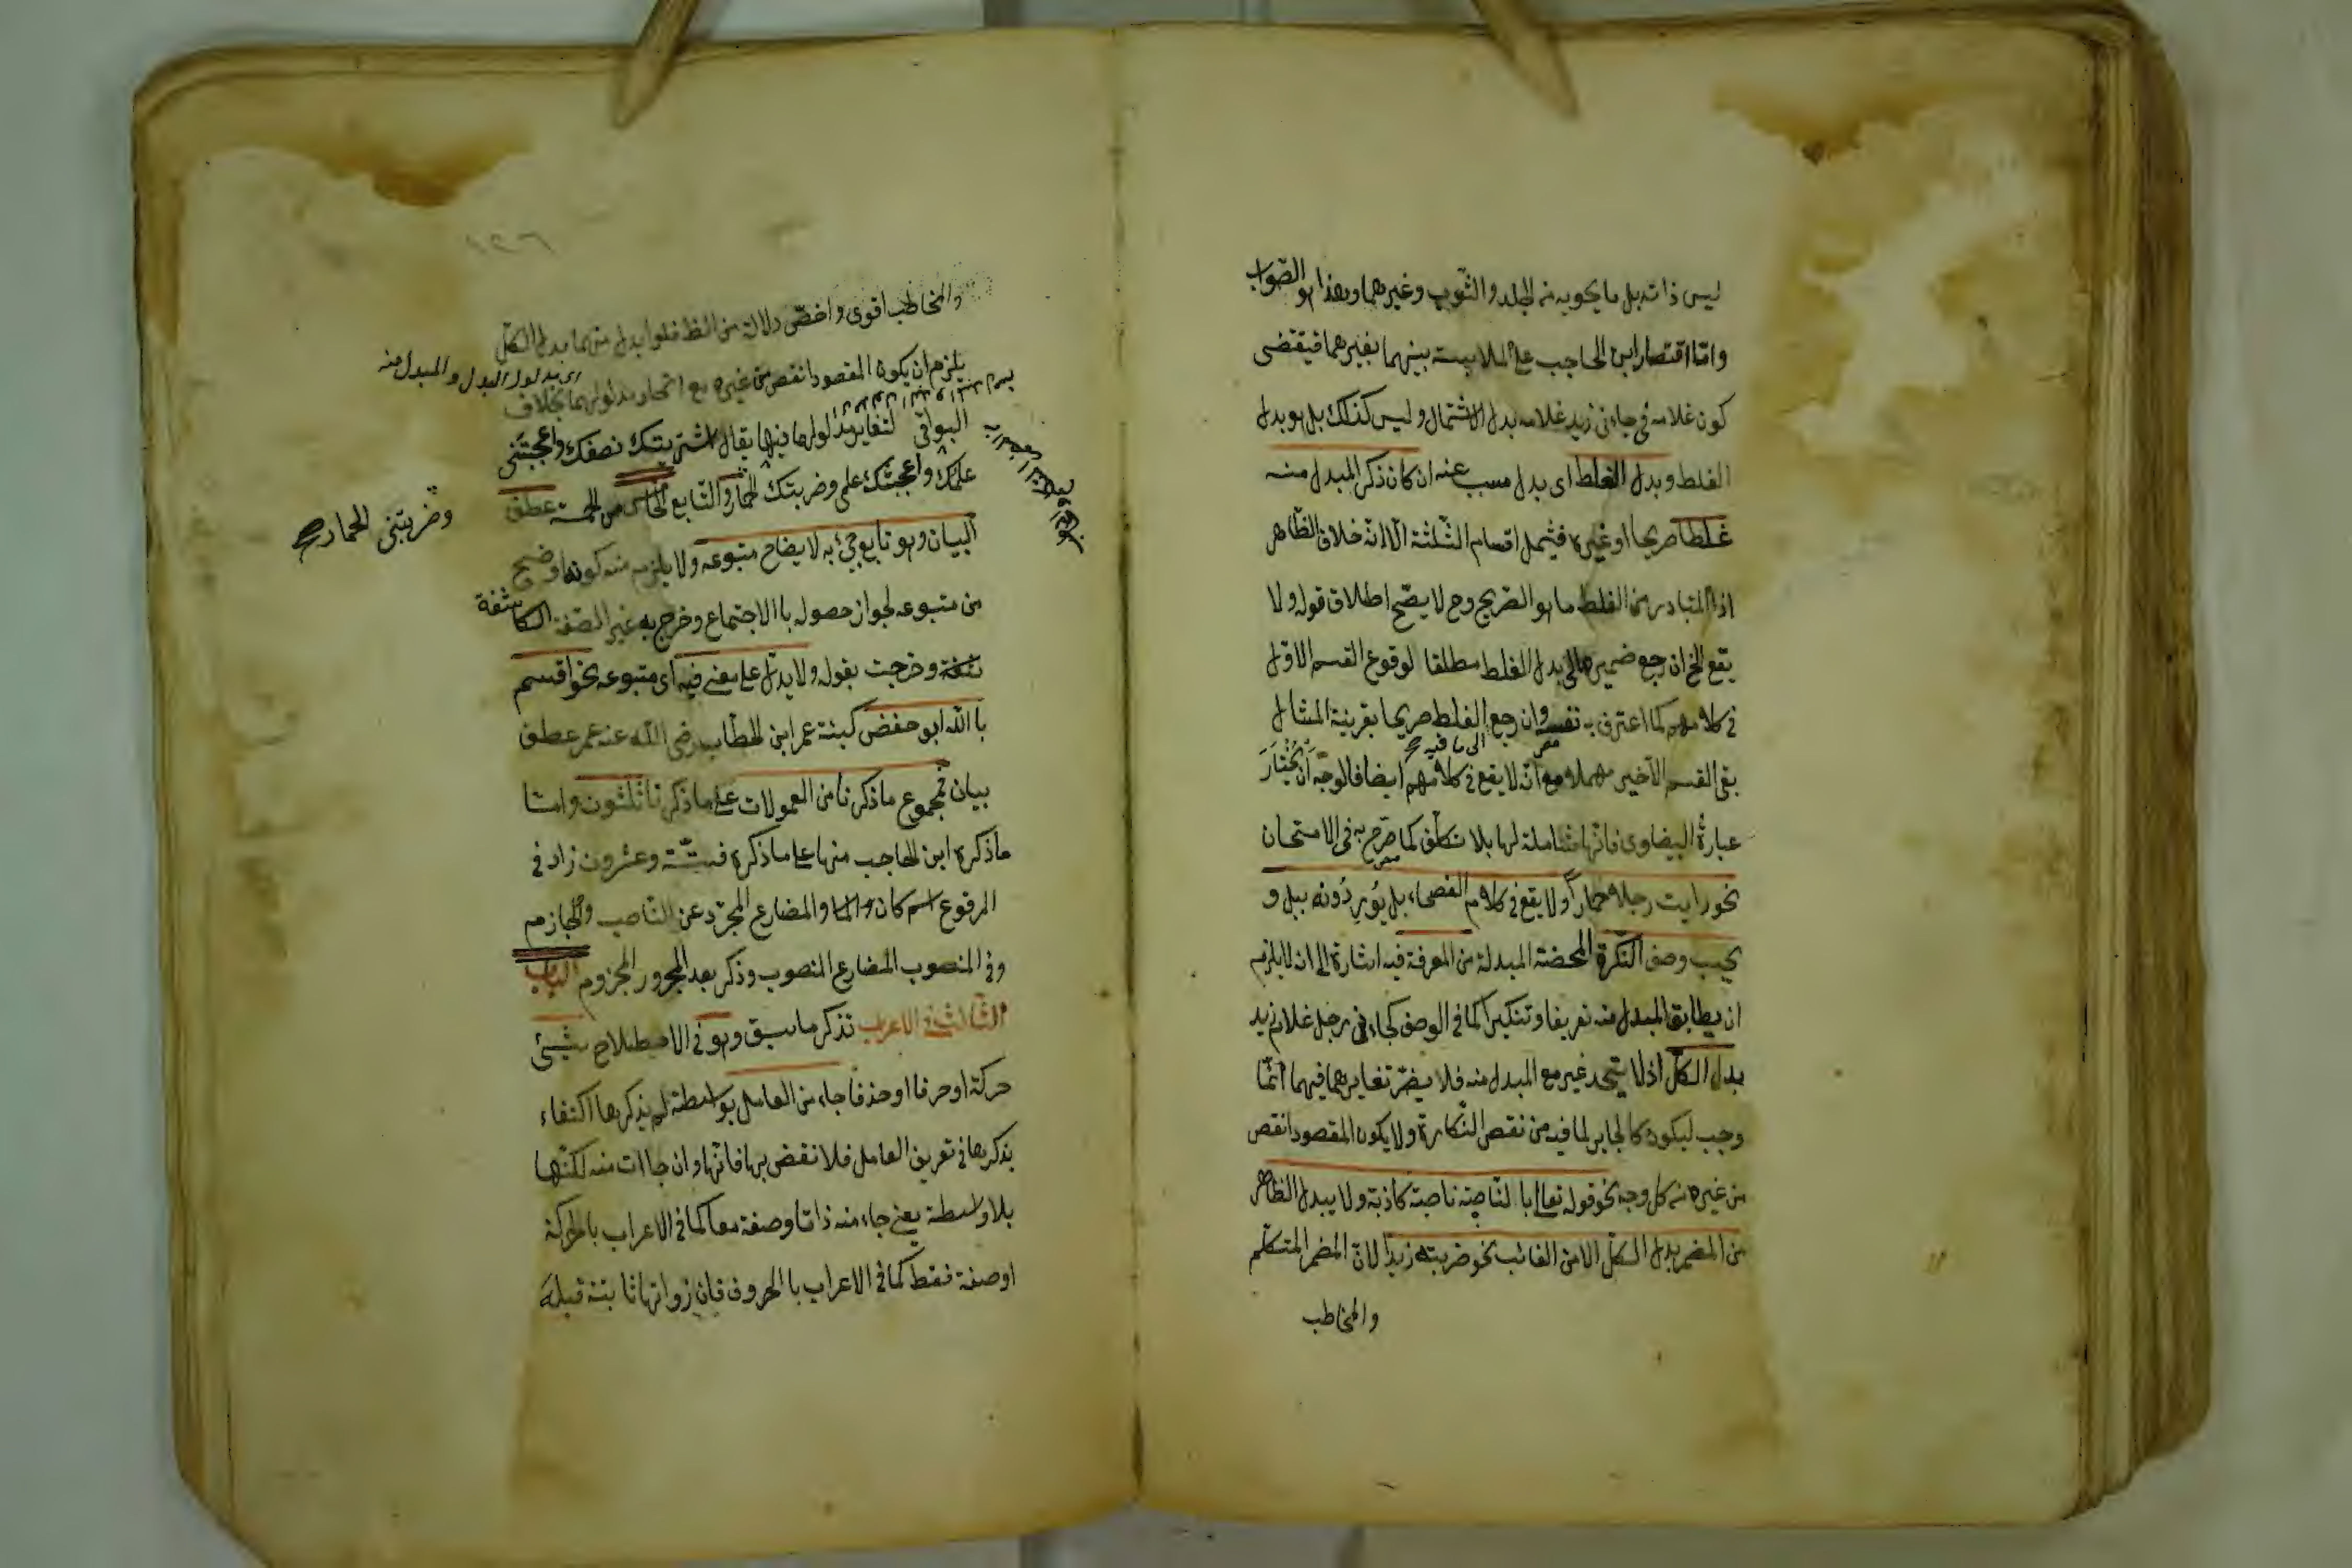 ليس ذاته بل ما يحويه من الجلد والثوب وغيرهما وهذا هو الصواب
واما اقتصار ابن الحاجب على الملابسة بينهما بغيرهما فيقتضى
كون غلامه فى جاءنى زيد غلامه بدل الاشتمال وليس كذلك بل هو بدل
الغلط وبدل الغلط اى بدل مسبب عنه ان كان ذكر المبدل منه
غلطا صريحا او غيره فيشمل اقسام الثلثة الا انه خلاف الظاهر
اذ المتبادر من الغلط ما هو الصريح وح لا يصح اطلاق قوله ولا
يقع الخ ان رجع ضميرها الى بدل الغلط مطلقا لوقوع القسم الاول
فى كلامهم كما اعترف به نفسه وان رجع الغلط صريحا بقرينة المثال
الى ما فيه صح
بقى القسم الاخير مهملا مع انه لا يقع فى كلامهم ايضا فالوجه ان يختار
عبارة البيضاوى فانها شاملة لها بلا تكلف كما صرح به فى الامتحان
نحو رايت رجلا حمارا ولا يقع فى كلام الفصحاء بل يوردونه ببل و
يجب وصف النكرة المحضة المبدلة من المعرفة فيه اشارة الى ان لا يلزم
ان يطابق المبدل منه تعريفا وتنكيرا كما فى الوصف كجاءنى رجل غلام زيد
بدل الكل اذ لا يتحد غير مع المبدل منه فلا يضر تغايرهما فيهما انما
وجب ليكون كالجابر لما فيه من نقص النكارة ولا يكون المقصود انقص
من غيره من كل وجه نحو قوله تعالى با الناصية ناصية كاذبة ولا يبدل الظاهر
من المضمر بدل الكل الا من الغائب نحو ضربته زيدا لان المضمر المتكلم
والمخاطب
١٢٦
والمخاطب اقوى واخص دلالة من الظ فلو ابدل منهما بدل الكل
يلزم ان يكون المقصود انقص من غيره مع اتحاد مدلولهما بخلاف
اى مدلول البدل والمبدل منه
البواقى لتغاير مدلولهما فيها يقال اشتريتك نصفك واعجبتنى
علمك واعجبتك علمى وضربتك الحمار والتابع الخامس من الخمسة عطف
وضربتنى الحمار صح
البيان وهو تابع جئ به لايضاح متبوعه ولا يلزم منه كونه اوضح
من متبوعه لجواز حصوله با الاجتماع وخرج به غير الصفة الكاشفة
وخرجت بقوله ولا يدل على معنى فيه اى متبوعه نحو اقسم
با الله ابو حفص كنية عمر ابن الخطاب رضى الله عنه عمر عطف
بيان فمجموع ما ذكرنا من المعمولات على ما ذكرنا ثلثون واما
ما ذكره ابن الحاجب منها على ما ذكره فستة وعشرون زاد فى
المرفوع اسم كان والمضارع المجرد عن الناصب والجازم
وفى المنصوب المضارع المنصوب وذكر بعد المجرور المجزوم الباب
الثالث فى الاعراب تذكر ما سبق وهو فى الاصطلاح شيئ
حركة او حرفا او حذفا جاء من العامل بواسطة لم يذكرها اكتفاء
بذكرها فى تعريف العامل فلا نقض بها فانها وان جاات منه لكنها
بلا واسطة يعنى جاء منه ذاتا وصفة معا كما فى الاعراب بالحركة
او صفة فقط كما فى الاعراب با الحروف فان ذواتها ثابتة قبله